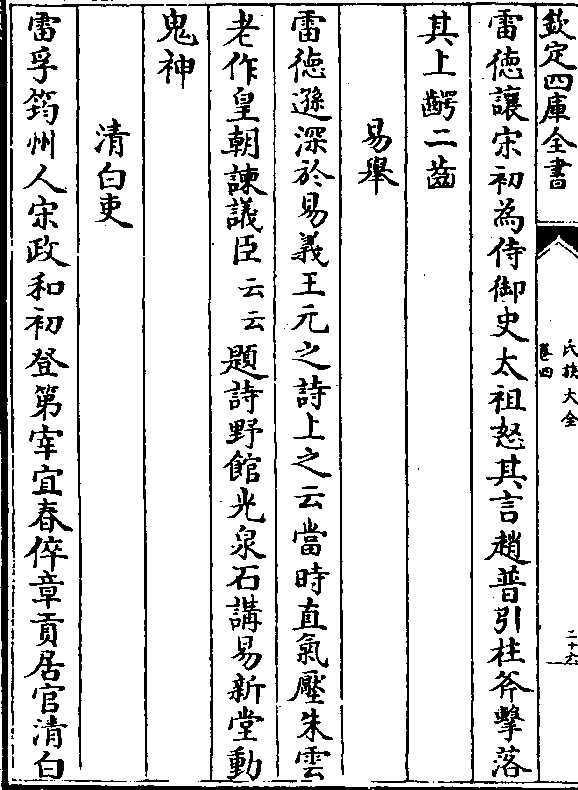 欽定四庫全書
氏族大全
卷四
二十六
雷徳讓宋初為侍御史太祖怒其言趙普引柱斧擊落
其上齶二齒
易舉
雷徳遜深於易義王元之詩上之云當時直氣壓朱雲
老作皇朝諫議臣云云題詩野館光泉石講易新堂動
鬼神
清白吏
雷孚筠州人宋政和初登第宰宜春倅章貢居官清白